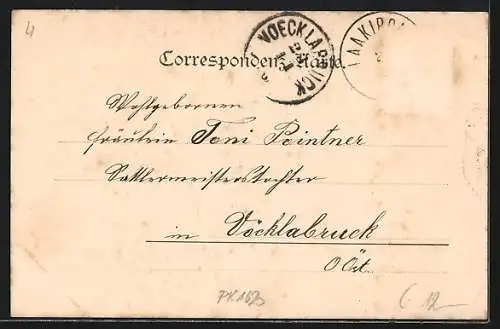 4
Correspondenz-Karte.
VOECKLABRUCK
LAAKIRCH
Wohlgebornen
Fräulein Toni Pointner
Sattlermeisterstochter
in Vöcklabruck
O Öst.
6 12